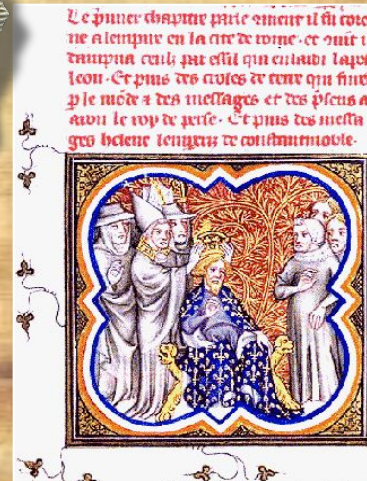 Le primer chapitre parle coment il fu coro
ne a lempire en la cite de rome. et
dampna ceulz par essil qui
leon. Et puis des choses de terre qui
p le mōde & des messages et des
aaron le roy de perse. Et puis des messa
ges helene lempereriz de constantinoble.